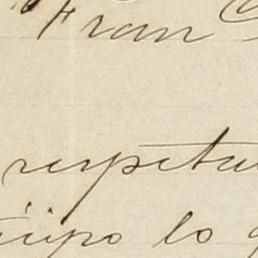 Fran
respeta
tipo lo